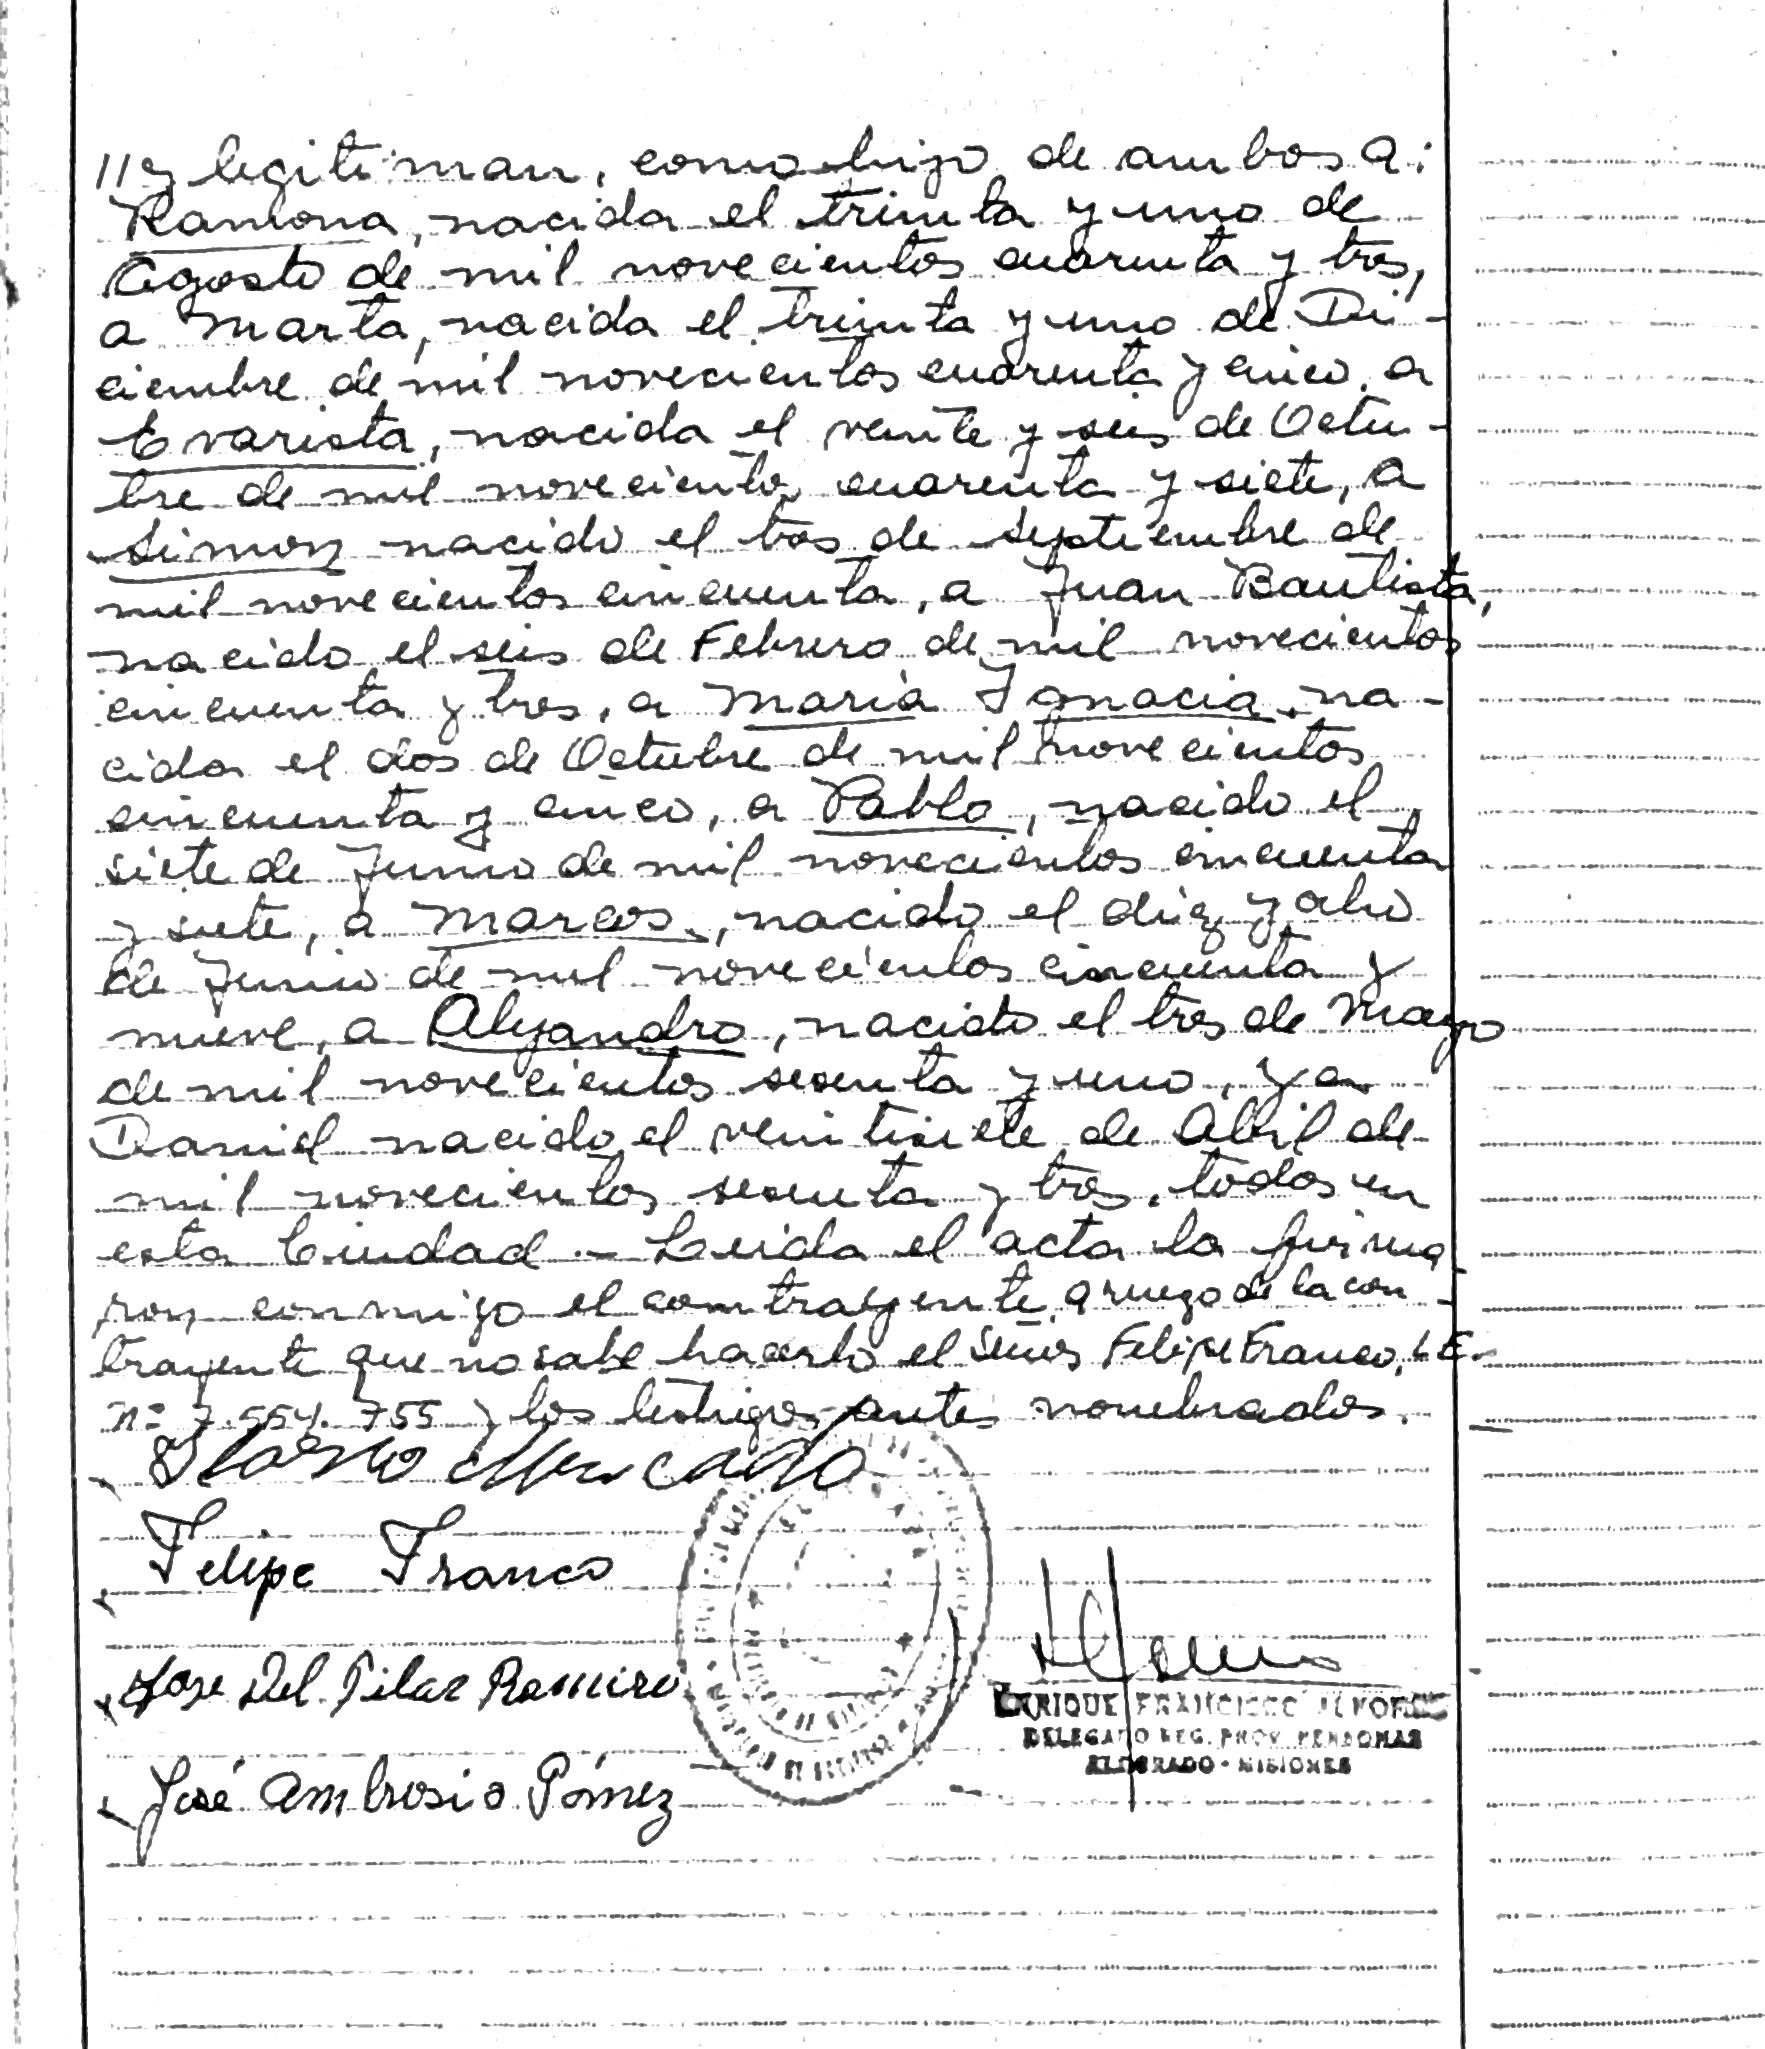 //y legitiman, como hijo de ambos a:
Ramona, nacida el treinta y uno de
Agosto de mil novecientos cuarenta y tres,
a Marta, nacida el treinta y uno de Di-
ciembre de mil novecientos cuarenta y cinco, a
Evarista, nacida el veinte y seis de Octu-
bre de mil novecientos cuarenta y siete, a
Simon nacido el tres de Septiembre de
mil novecientos cincuenta, a Juan Bautista,
nacido el seis de Febrero de mil novecientos
cincuenta y tres, a Maria Ignacia, na-
cida el dos de Octubre de mil novecientos
cincuenta y cinco, a Pablo, nacido el
siete de Junio de mil novecientos cincuenta
y siete, a Marcos, nacido el diez y ocho
de Junio de mil novecientos cincuenta y
nueve, a Alejandro, nacido el tres de Mayo
de mil novecientos sesenta y uno, y a
Daniel nacido el veintisiete de Abril de
mil novecientos sesenta y tres, todos en
esta Ciudad.- Leida el acta la firma
ron conmigo el contrayente, a ruego de la con-
trayente que no sabe hacerlo el Señor Felipe Franco, L.E.
nº 7.554.755 y los testigos antes nombrados.
Mercado
Felipe Franco
Jose Del Pilar Ramirez
José Ambrosio Pómez
ENRIQUE FRANCISCO
DELEGADO REG. PROV. PERSONAS
ELDORADO - MISIONES